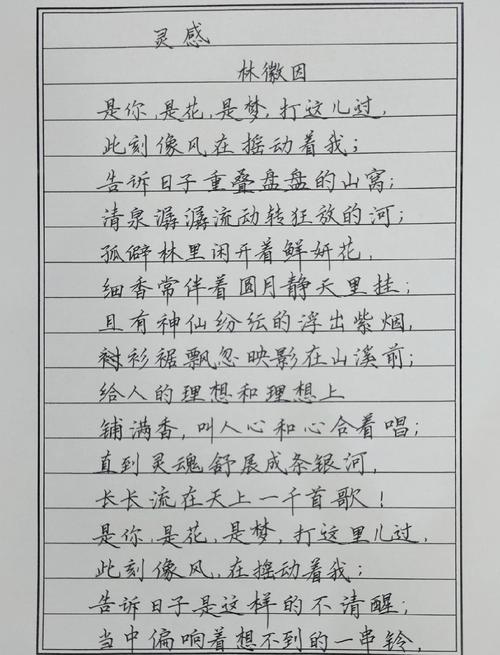 灵感
林徽因
是你,是花,是梦,打这儿过,
此刻像风在摇动着我;
告诉日子重叠盘盘的山窝;
清泉潺潺流动转狂放的河;
孤僻林里闲开着鲜妍花,
细香常伴着圆月静天里挂;
且有神仙纷纭的浮出紫烟,
衬衫裾飘忽映影在山溪前;
给人的理想和理想上
铺满香,叫人心和心合着唱;
直到灵魂舒展成条银河,
长长流在天上一千首歌!
是你,是花,是梦,打这里儿过,
此刻像风,在摇动着我;
告诉日子是这样的不清醒;
当中偏响着想不到的一串铃,